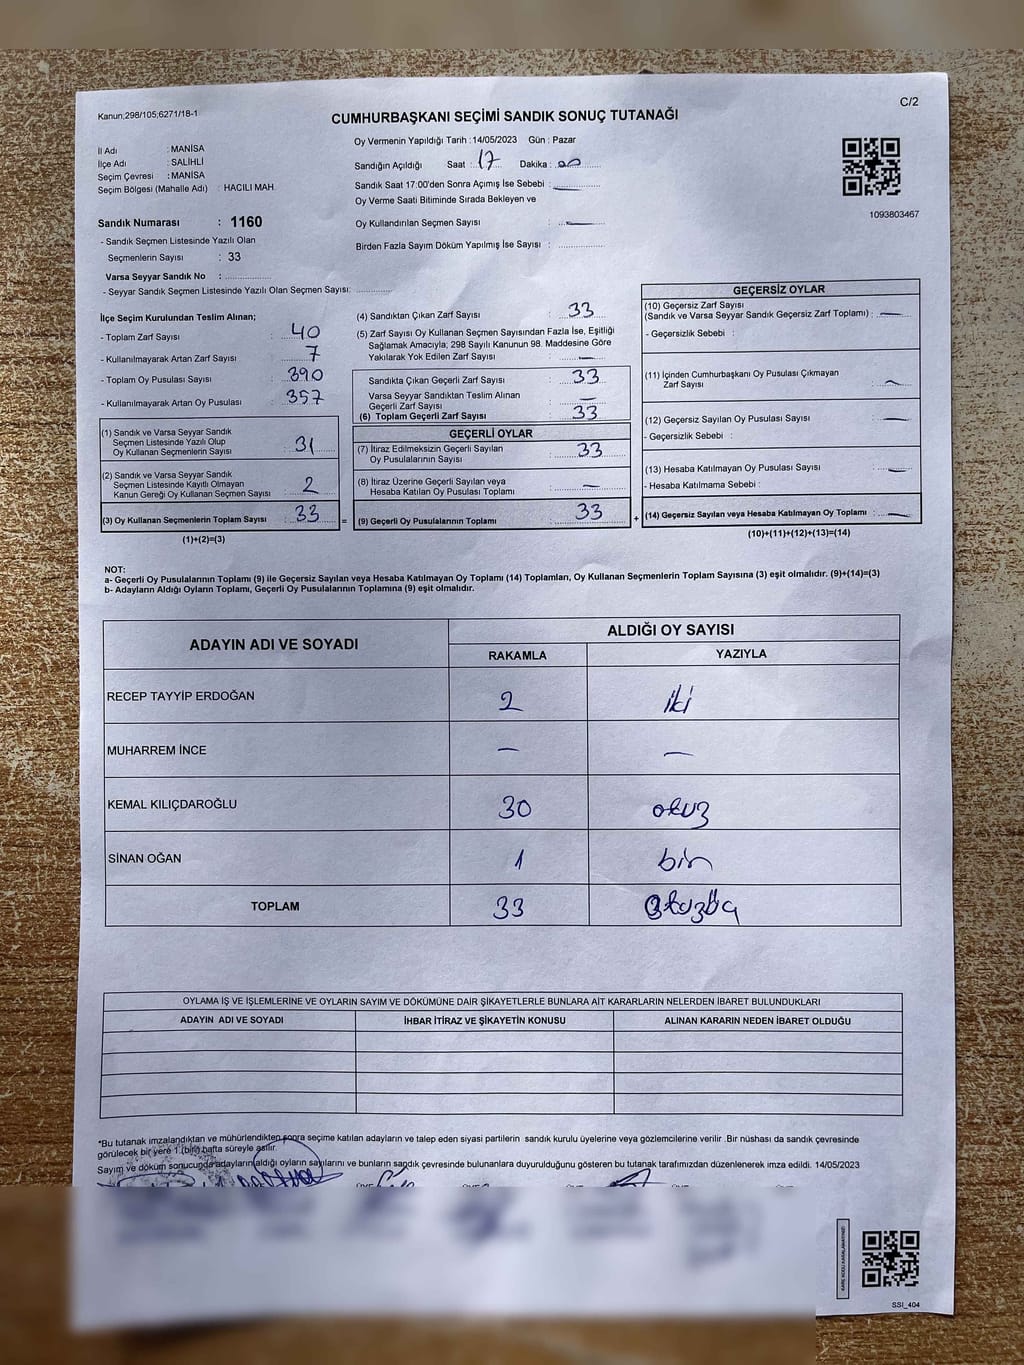 Kanun;298/105;6271/18-1
C/2
CUMHURBAŞKANI SEÇİMİ SANDIK SONUÇ TUTANAĞI
İl Adı : MANİSA
İlçe Adı : SALİHLİ
Seçim Çevresi : MANİSA
Seçim Bölgesi (Mahalle Adı) : HACILI MAH.
Sandık Numarası : 1160
- Sandık Seçmen Listesinde Yazılı Olan
Seçmenlerin Sayısı : 33
Varsa Seyyar Sandık No :
- Seyyar Sandık Seçmen Listesinde Yazılı Olan Seçmen Sayısı:
Oy Vermenin Yapıldığı Tarih : 14/05/2023 Gün : Pazar
Sandığın Açıldığı Saat : 17 Dakika : 00
Sandık Saat 17:00'den Sonra Açımış İse Sebebi : —
Oy Verme Saati Bitiminde Sırada Bekleyen ve
Oy Kullandırılan Seçmen Sayısı : —
Birden Fazla Sayım Döküm Yapılmış İse Sayısı :
1093803467
İlçe Seçim Kurulundan Teslim Alınan;
- Toplam Zarf Sayısı : 40
- Kullanılmayarak Artan Zarf Sayısı : 7
- Toplam Oy Pusulası Sayısı : 390
- Kullanılmayarak Artan Oy Pusulası : 357
(1) Sandık ve Varsa Seyyar Sandık
Seçmen Listesinde Yazılı Olup
Oy Kullanan Seçmenlerin Sayısı : 31
(2) Sandık ve Varsa Seyyar Sandık
Seçmen Listesinde Kayıtlı Olmayan
Kanun Gereği Oy Kullanan Seçmen Sayısı : 2
(3) Oy Kullanan Seçmenlerin Toplam Sayısı : 33 =
(1)+(2)=(3)
(4) Sandıktan Çıkan Zarf Sayısı : 33
(5) Zarf Sayısı Oy Kullanan Seçmen Sayısından Fazla İse, Eşitliği
Sağlamak Amacıyla; 298 Sayılı Kanunun 98. Maddesine Göre
Yakılarak Yok Edilen Zarf Sayısı : —
Sandıkta Çıkan Geçerli Zarf Sayısı : 33
Varsa Seyyar Sandıktan Teslim Alınan
Geçerli Zarf Sayısı : —
(6) Toplam Geçerli Zarf Sayısı : 33
GEÇERLİ OYLAR
(7) İtiraz Edilmeksizin Geçerli Sayılan
Oy Pusulalarının Sayısı : 33
(8) İtiraz Üzerine Geçerli Sayılan veya
Hesaba Katılan Oy Pusulası Toplamı : —
(9) Geçerli Oy Pusulalarının Toplamı : 33 +
GEÇERSİZ OYLAR
(10) Geçersiz Zarf Sayısı
(Sandık ve Varsa Seyyar Sandık Geçersiz Zarf Toplamı) : —
- Geçersizlik Sebebi :
(11) İçinden Cumhurbaşkanı Oy Pusulası Çıkmayan
Zarf Sayısı : —
(12) Geçersiz Sayılan Oy Pusulası Sayısı : —
- Geçersizlik Sebebi :
(13) Hesaba Katılmayan Oy Pusulası Sayısı : —
- Hesaba Katılmama Sebebi :
(14) Geçersiz Sayılan veya Hesaba Katılmayan Oy Toplamı : —
(10)+(11)+(12)+(13)=(14)
NOT:
a- Geçerli Oy Pusulalarının Toplamı (9) ile Geçersiz Sayılan veya Hesaba Katılmayan Oy Toplamı (14) Toplamları, Oy Kullanan Seçmenlerin Toplam Sayısına (3) eşit olmalıdır. (9)+(14)=(3)
b- Adayların Aldığı Oyların Toplamı, Geçerli Oy Pusulalarının Toplamına (9) eşit olmalıdır.
ADAYIN ADI VE SOYADI ALDIĞI OY SAYISI
RAKAMLA YAZIYLA
RECEP TAYYİP ERDOĞAN 2 iki
MUHARREM İNCE — —
KEMAL KILIÇDAROĞLU 30 otuz
SİNAN OĞAN 1 bir
TOPLAM 33 otuzüç
OYLAMA İŞ VE İŞLEMLERİNE VE OYLARIN SAYIM VE DÖKÜMÜNE DAİR ŞİKAYETLERLE BUNLARA AİT KARARLARIN NELERDEN İBARET BULUNDUKLARI
ADAYIN ADI VE SOYADI İHBAR İTİRAZ VE ŞİKAYETİN KONUSU ALINAN KARARIN NEDEN İBARET OLDUĞU
*Bu tutanak imzalandıktan ve mühürlendikten sonra seçime katılan adayların ve talep eden siyasi partilerin sandık kurulu üyelerine veya gözlemcilerine verilir .Bir nüshası da sandık çevresinde
görülecek bir yere 1 (bir) hafta süreyle asılır.
Sayım ve döküm sonucunda adayların aldığı oyların sayılarını ve bunların sandık çevresinde bulunanlara duyurulduğunu gösteren bu tutanak tarafımızdan düzenlenerek imza edildi. 14/05/2023
SSI_404